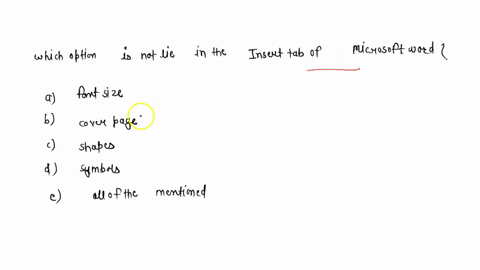 which option is not lie in the Insert tab of microsoft word {
a) font size
b) cover page
c) shapes
d) symbols
e) all of the mentioned